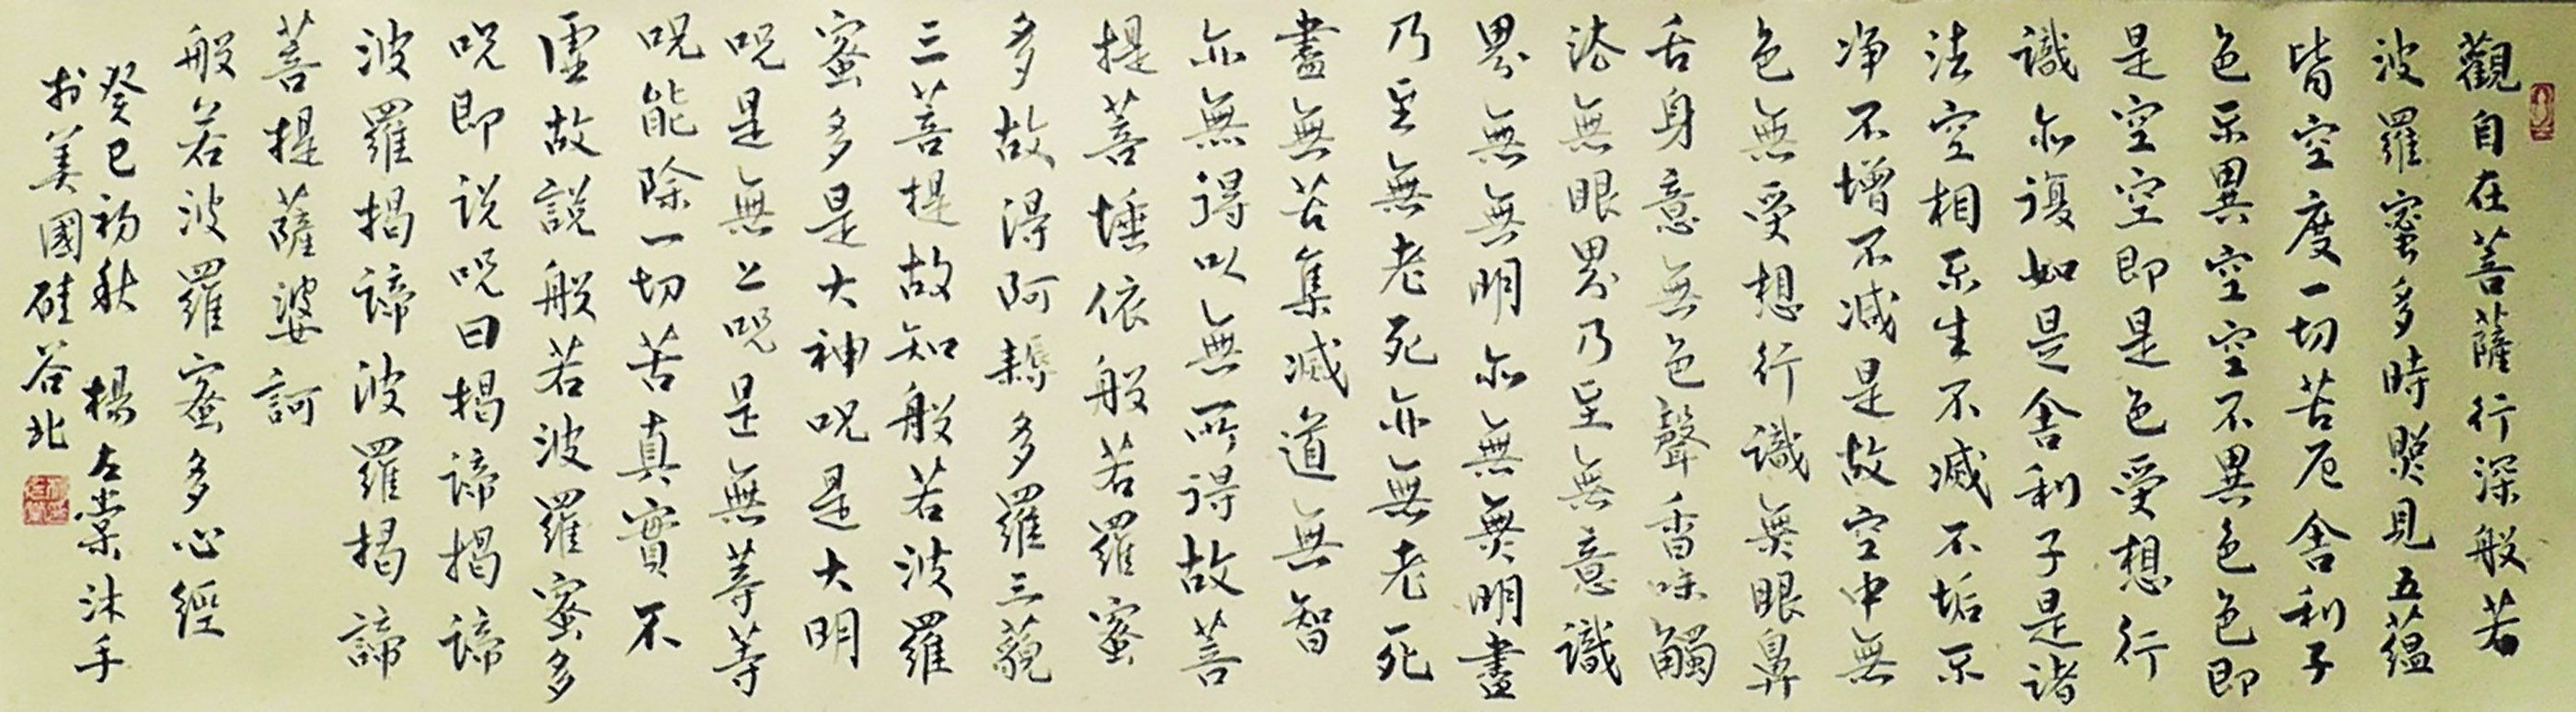 觀自在菩薩行深般若
波羅蜜多時照見五蘊
皆空度一切苦厄舍利子
色不異空空不異色色即
是空空即是色受想行
識亦復如是舍利子是諸
法空相不生不滅不垢不
淨不增不減是故空中無
色無受想行識無眼鼻
舌身意無色聲香味觸
法無眼界乃至無意識
界無無明亦無無明盡
乃至無老死亦無老死
盡無苦集滅道無智
亦無得以無所得故菩
提菩埵依般若羅蜜
多故得阿耨多羅三藐
三菩提故知般若波羅
蜜多是大神呪是大明
呪是無上呪是無等等
呪能除一切苦真實不
虛故說般若波羅蜜多
呪即說呪曰揭諦揭諦
波羅揭諦波羅揭諦
菩提薩婆訶
般若波羅蜜多心經
癸巳初秋 楊左棠沐手
於美國硅谷北